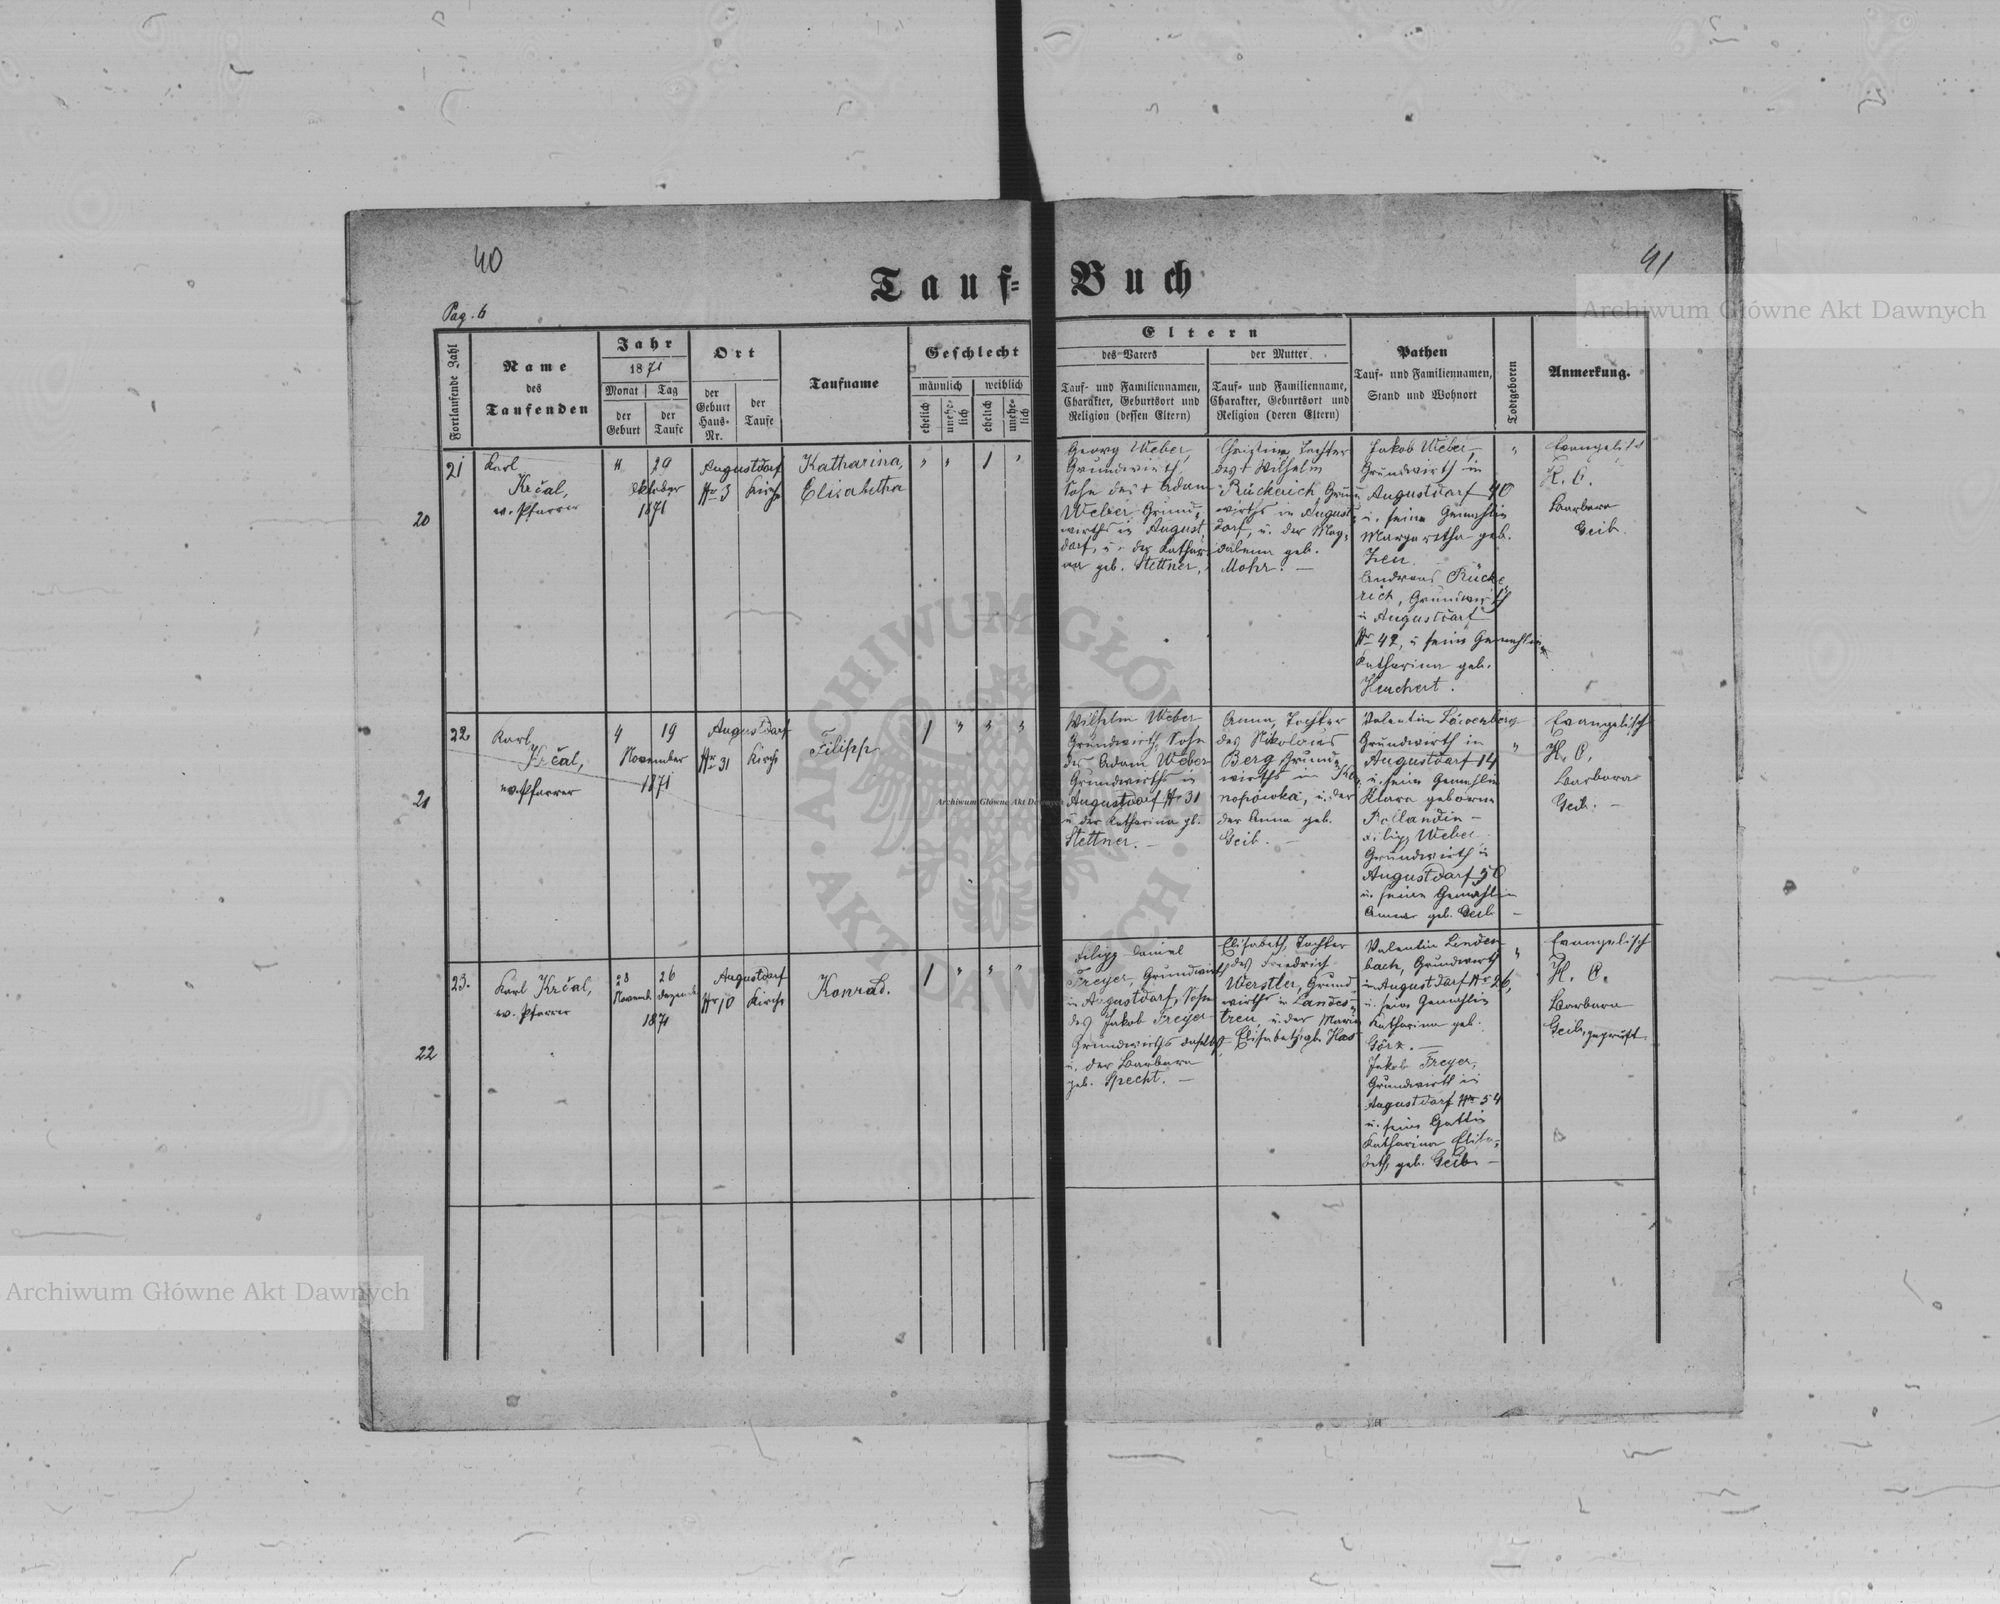 40
41
Tauf-Buch
Pag. 6
Fortlaufende Zahl
Name
des
Taufenden
Jahr
1871
Monat
Tag
der
Geburt
der
Taufe
Ort
der
Geburt
Haus-
Nr.
der
Taufe
Taufname
Geschlecht
männlich
weiblich
ehelich
unehe-
lich
ehelich
unehe-
lich
Eltern
des Vaters
der Mutter
Tauf- und Familiennamen,
Charakter, Geburtsort und
Religion (dessen Eltern)
Tauf- und Familienname,
Charakter, Geburtsort und
Religion (deren Eltern)
Pathen
Tauf- und Familiennamen,
Stand und Wohnort
Todtgeboren
Anmerkung.
21
20
Karl
Krčal,
ev. Pfarrer
11
29
Oktober
1871
Augustdorf
Nr 3
Kirche
Katharina,
Elisabetha
" " 1 "
Georg Weber,
Grundwirth,
Sohn des + Adam
Weber Grund-
wirths in August
dorf, u. der Kathari
na geb. Stettner.
Christina Tochter
des + Wilhelm
Rückerich, Grund
wirths in August
dorf, u. der Mag-
dalena geb.
Mohr. —
Jakob Weber,
Grundwirth in
Augustdorf 40
u. seine Gemahlin
Margaretha geb.
Andreas Rücke
rich, Grundwirth
in Augustdorf
Nr 42, u. seine Gemahlin
Katharina geb.
Heuchert.
"
Evangelisch
H. C.
Barbara
Geib.
22
21
Karl
Krčal,
ev. Pfarrer
4
19
November
1871
Augustdorf
Nr 31
Kirche
Filipp
1 " " "
Wilhelm Weber
Grundwirth, Sohn
des Adam Weber
Grundwirths in
Augustdorf Nr 31
u. der Katharina gb.
Stettner. —
Anna, Tochter
des Nikolaus
Berg, Grund-
wirths in Ko
nopówka, u. der
der Anna geb.
Geib. —
Valentin Löwenberg
Grundwirth in
Augustdorf 14
u. seine Gemahlin
Klara geborne
Rollandin —
Filipp Weber
Grundwirth in
Augustdorf 50
u. seine Gemahlin
Anna geb. Geib —
"
Evangelisch
H. C.
Barbara
Geib. —
23.
22
Karl Krčal,
ev. Pfarrer
28
Novemb.
26
Dezemb.
1871
Augustdorf
Nr 10
Kirche
Konrad.
1 " " "
Filipp Daniel
Freyer, Grundwirth
in Augustdorf, Sohn
des Jakob Freyer
Grundwirths daselbst
u. der Barbara
geb. Specht. —
Elisabeth, Tochter
des Friedrich
Werstler, Grund
wirths in Landes-
treu, u. der Maria
Elisabeth, gb. Has
Valentin Linden
bach, Grundwirth
in Augustdorf Nr 26,
u. seine Gemahlin
Katharina geb.
Görz. —
Jakob Freyer,
Grundwirth in
Augustdorf Nr 54
u. seine Gattin
Katharina Elisa-
beth, geb. Geib —
"
Evangelisch
H. C.
Barbara
Geib, geprüft
Archiwum Główne Akt Dawnych
Archiwum Główne Akt Dawnych
Archiwum Główne Akt Dawnych
ARCHIWUM GŁÓWNE AKT DAWNYCH